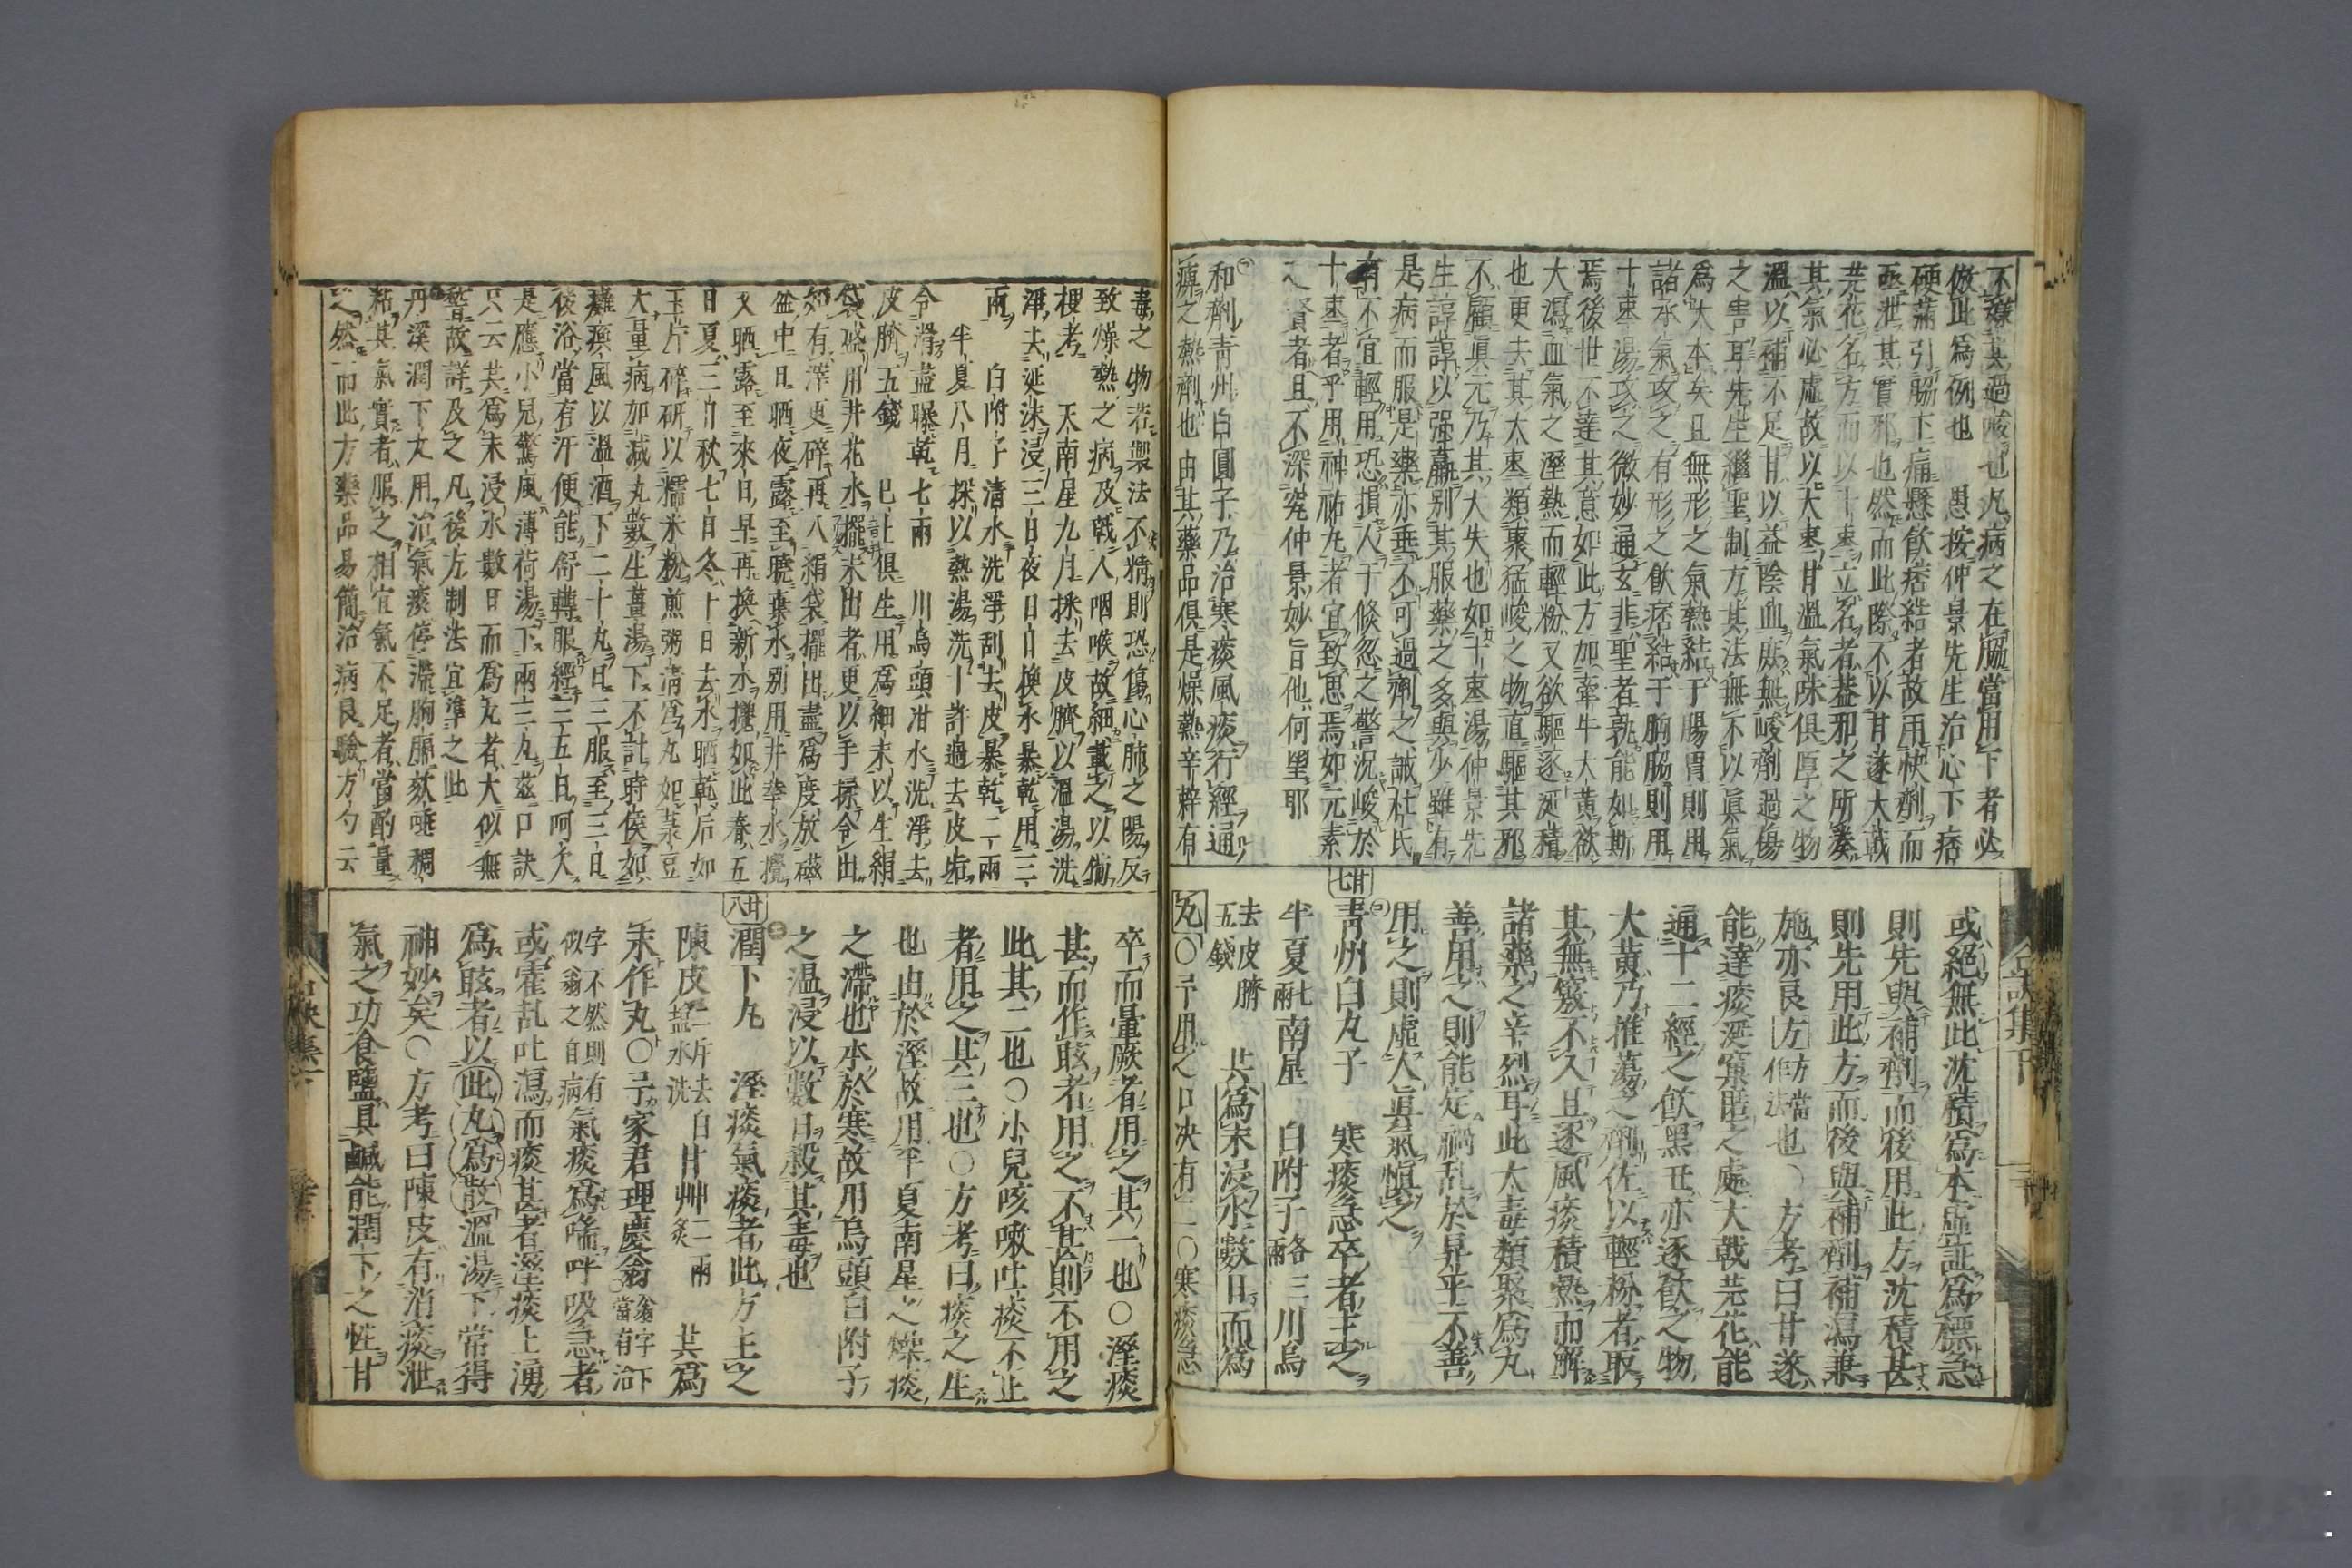 不嫌其過峻也凡病之在腸當用下者必
倣此爲例也　愚按仲景先生治心下痞
硬滿引脇下痛懸飮痞結者故用快劑而
亟泄其實邪也然而此際不以甘遂大戟
芫花名方而以十棗立名者葢邪之所湊
其氣必虛故以大棗甘溫氣味俱厚之物
溫以補不足甘以益陰血庶無峻劑過傷
之害耳先生繼聖制方其法無不以眞氣
爲大本矣且無形之氣熱結于腸胃則用
諸承氣攻之有形之飮痞結于胸脇則用
十棗湯攻之微妙通玄非聖者孰能如斯
焉後世不達其意如此方加牽牛大黃欲
大瀉血氣之溼熱而輕粉又欲驅逐涎積
也更去其大棗類聚猛峻之物直驅其邪
不顧眞元乃其大失也如十棗湯仲景先
生諄諄以强羸別其服藥之多與少雖有
是病而服是藥亦垂不可過劑之誡杜氏
有不宜輕用恐損人于倏忽之警況峻於
十棗者乎用神祐丸者宜致思焉如元素
之賢者且不深究仲景妙旨他何望耶
和劑青州白圓子乃治寒痰風痰行經通
痹之熱劑也由其藥品俱是燥熱辛粹有
或絕無此沈積爲本虛証爲標急
則先與補劑而後用此方沈積甚
則先用此方而後與補劑補瀉兼
施亦良方方當作法也〇方考曰甘遂
能達痰涎窠匿之處大戟芫花能
通十二經之飮黑丑亦逐飮之物
大黃乃推蕩之劑佐以輕粉者取
其無竅不入且逐風痰積熱而解
諸藥之辛烈耳此大毒類聚爲丸
善用之則能定禍乱於昇平不善
用之則虛人眞氣愼之
廿七
青州白丸子　寒痰急卒者主之
半夏七兩南星　白附子各三兩川烏
去皮臍五錢　共爲末浸水數日而爲
丸〇予用之口决有二〇寒痰急
毒之物若製法不精則恐傷心肺之陽反
致燥熱之病及戟人咽喉故細載之以備
梗考　天南星九月採去皮臍以溫湯洗
淨去涎沫浸三日夜日日換水暴乾用三
兩　白附子清水洗淨刮去皮暴乾二兩
半夏八月採以熱湯洗十許過去皮垢
令滑盡曝乾七兩　川烏頭泔水洗淨去
皮臍五錢　已上俱生用爲細末以生絹
袋盛用井花水擺末出者更以手揉令出
如有滓更碎再入絹袋擺出盡爲度放磁
盆中日晒夜露至曉棄水別用井華水攪
又晒露至來日早再換新水攪如此春五
日夏三日秋七日冬十日去水晒乾后如
玉片碎研以糯米粉煎粥清爲丸如菉豆
大量病加減丸數生薑湯下不計時候如
癱瘓風以溫酒下二十丸日三服至三日
後浴當有汗便能舒轉服經三五日呵欠
是應小兒驚風薄荷湯下兩三丸茲口訣
只云共爲末浸水數日而爲丸者大似無
誓故詳及之凡後方制法宜準之此
丹溪潤下丸用治氣痰停滯胸膈欬唾稠
粘其氣實者服之相宜氣不足者當酌量
之然而此方藥品易簡治病良驗方勺云
卒而暈厥者用之其一也〇溼痰
甚而作眩者用之不甚則不用之
此其二也〇小兒咳嗽吐痰不止
者用之其三也〇方考曰痰之生
也由於溼故用半夏南星之燥痰
之滯也本於寒故用烏頭白附子
之溫浸以數日殺其毒也
廿八
潤下丸　溼痰氣痰者此方主之
陳皮二斤去白鹽水洗甘艸二兩炙　共爲
末作丸〇予家君理慶翁翁字下當有治下
字不然則有似翁之自病氣痰爲喘呼吸急者
或霍乱吐瀉而痰甚者溼痰上湧
爲眩者以此丸爲散溫湯下常得
神妙矣〇方考曰陳皮有消痰泄
氣之功食鹽具鹹能潤下之性甘